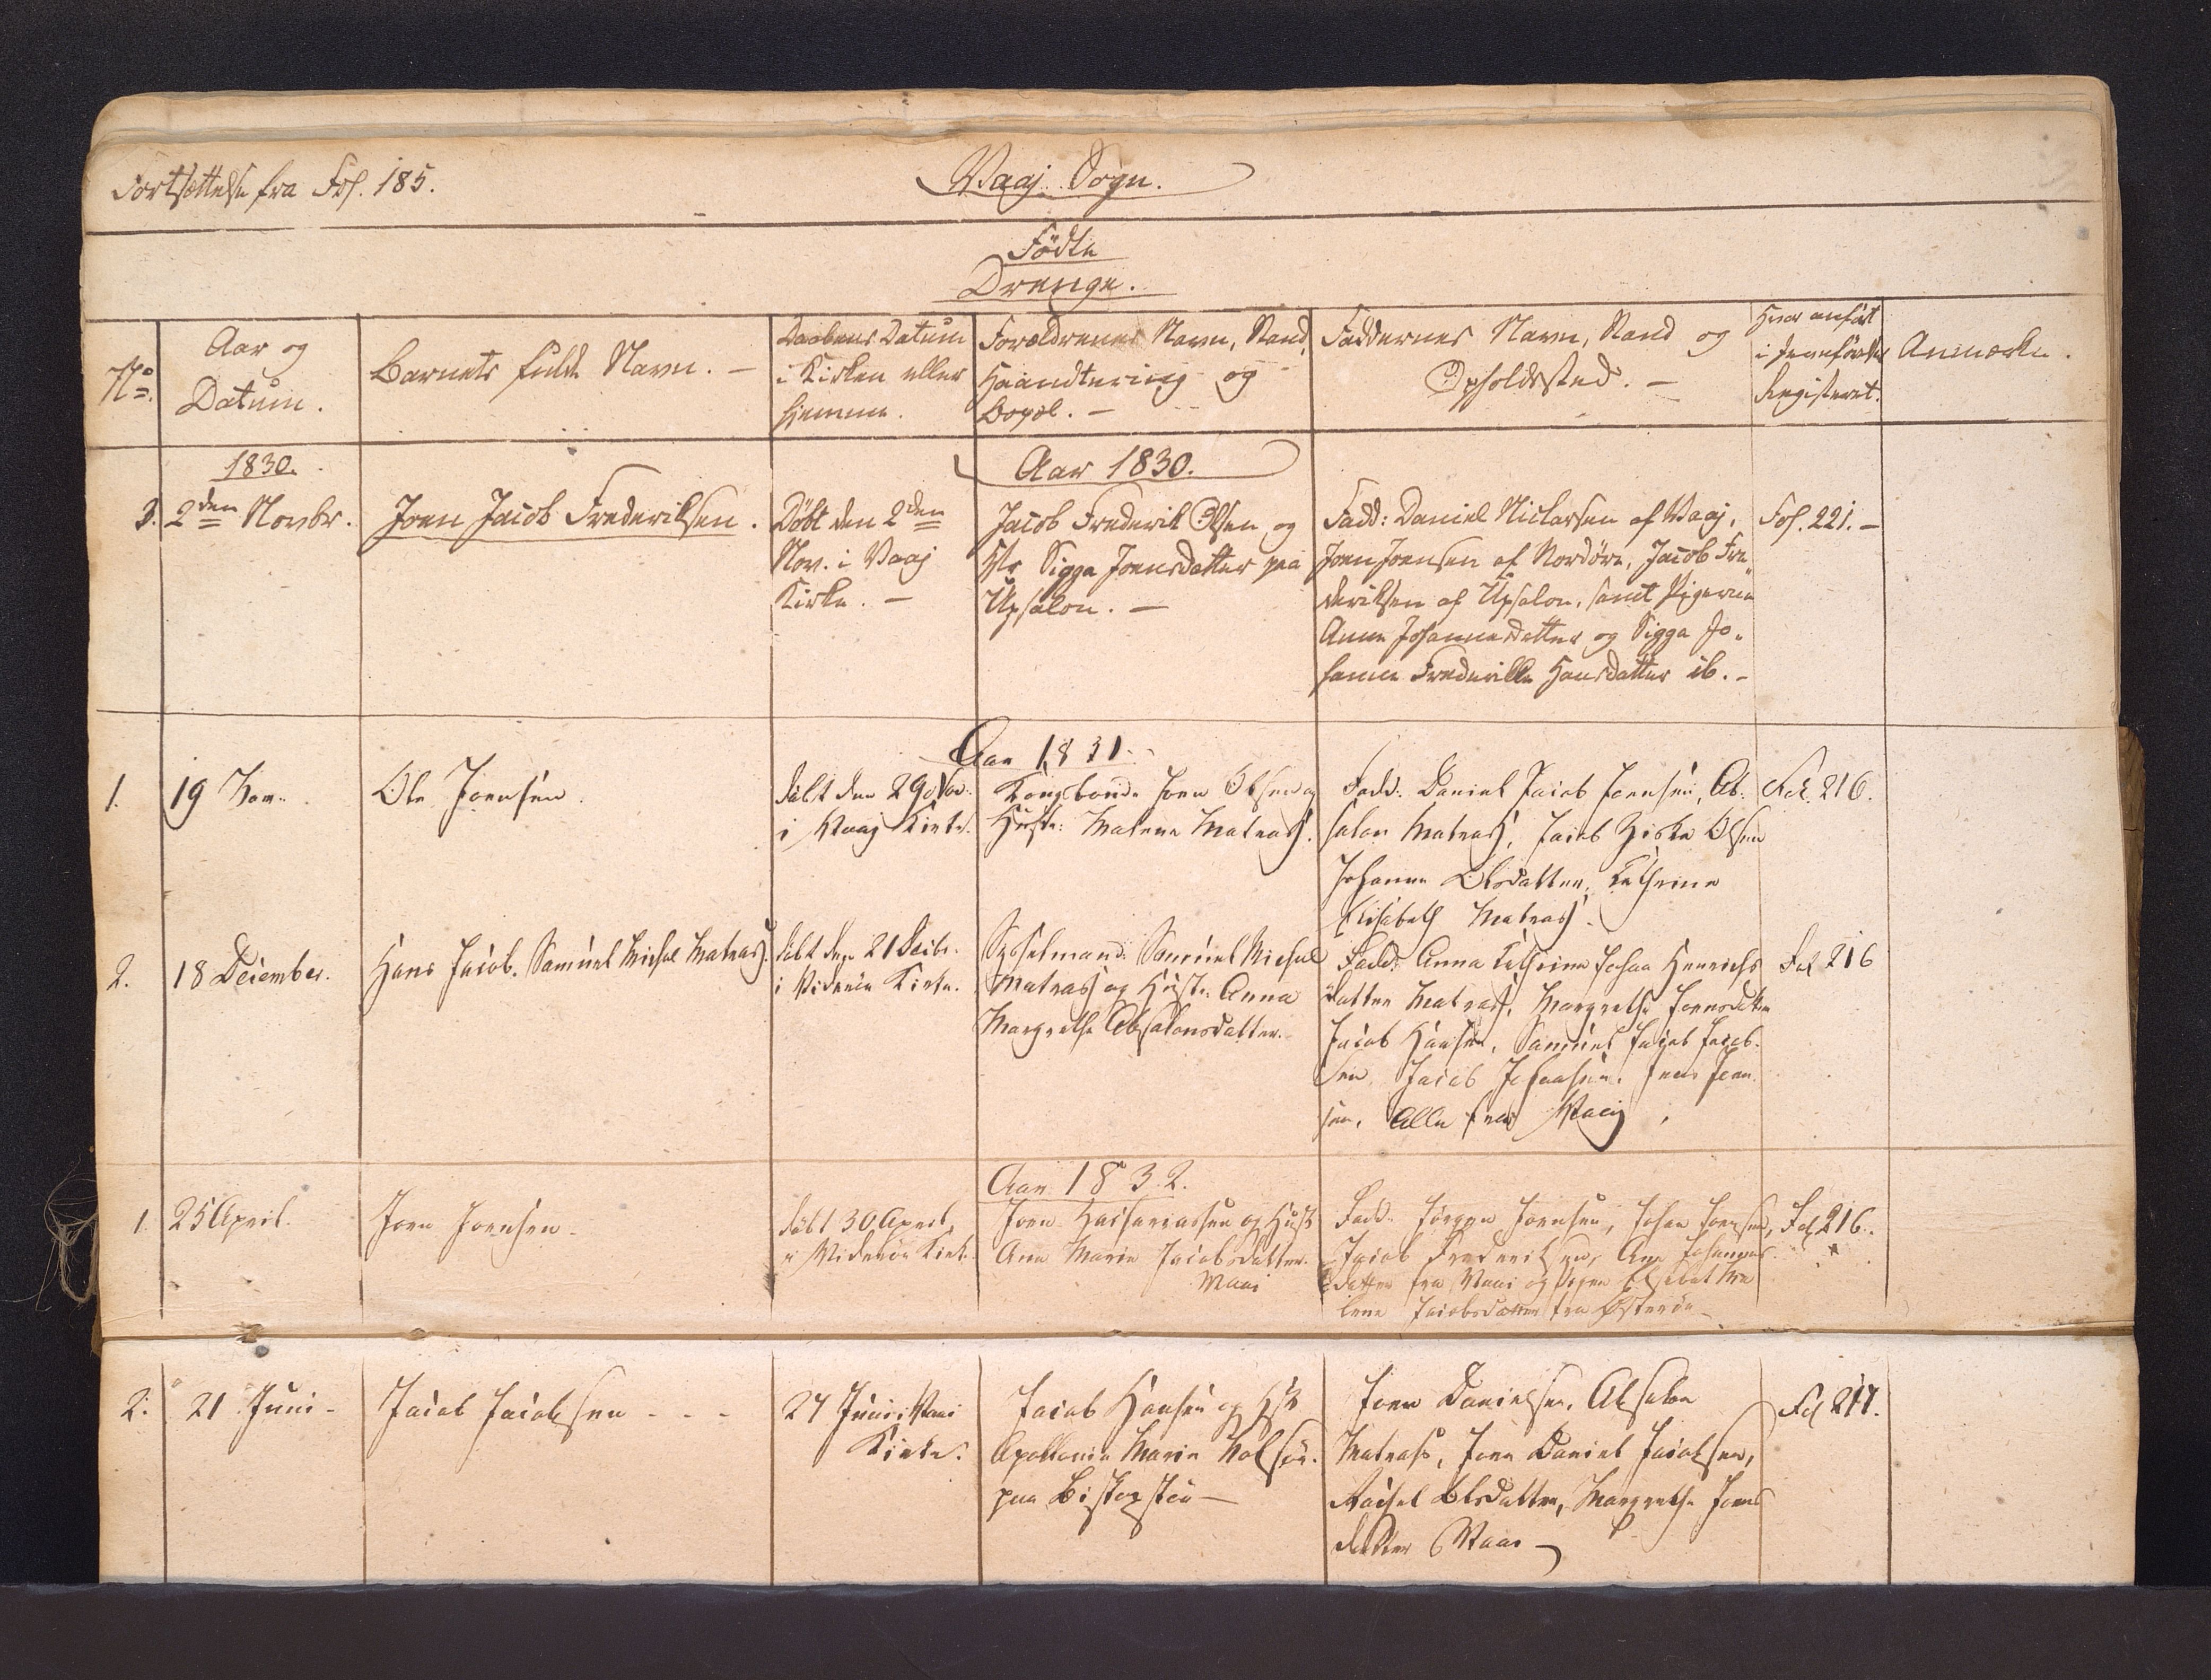 Fortsættelse fra Fol. 185.
Vaaj Sogn.
Födte
Drenge.
No.
Aar og
Datum.
Barnets fulde Navn. -
Daabens Datum
i Kirken eller
hjemme.
Forældrenes Navn, Stand,
Haandtering og
Bopæl. -
Faddernes Navn, Stand og
Opholdssted. -
Hvor anført
i Jevnførelse
Registeret.
Anmærkn.
1830.
Aar 1830.
3.
2den Novbr.
Joen Jacob Frederiksen.
Döbt den 2den
Nov. i Vaaj
Kirke. -
Jacob Frederik Olsen og
Hr Sigga Joensdatter paa
Upsalon. -
Fadd: Daniel Niclassen af Vaaj,
Joen Joensen af Nordöre, Jacob Fre
deriksen af Upsalon, samt Pigerne
Anne Johannesdatter og Sigga Jo-
hanne Frederikke Hansdatter ib. -
Fol. 221. -
Aar 1831.
1.
19 Nov.
Ole Joensen.
döbt den 29 Nov.
i Vaaj Kirke.
Kongsbonde Joen Olsen og
Hustr: Malene Matras.
Fadd: Daniel Jacob Joensen, Ab-
salon Matras, Jacob Olsen
Johanne Olsdatter, Cathrine
Elisabeth Matras.
Fol. 216.
2.
18 December.
Hans Jacob Samuel Michel Matras.
döbt den 21 Decbr.
i Videröe Kirke.
Sysselmand Samuel Michel
Matras og Hustr. Anna
Margrethe Absalonsdatter.
Fadd: Anna Cathrine Johan Henrichs
datter Matras, Margrethe Joensdatter
Jacob Hansen, Samuel Jacob Jacob-
sen, Jacob Johansen, Joen
sen, Alle fra Vaaij.
Fol 216
Aar 1832.
1.
25 April.
Joen Joensen -
döbt 30 April,
i Videröe Kirk.
Joen Zachariassen og Hust
Ane Marie Jacobsdatter.
Vaai
Fadd: Jörgen Joensen, Johan Joensen,
Jacob Frederiksen, Ane Johannes
datter fra Vaai og Pigen Elsebet Ma
lene Jacobsdatter fra Österöe -
Fol 216.
2.
21 Juni -
Jacob Jacobsen - - -
27 Juni i Vaai
Kirke.
Jacob Hansen og Hst
Apollonia Marie
paa Biskopstöe -
Joen Danielsen, Absalon
Matras, Joen Daniel Jacobsen,
Rachel Olsdatter, Margrethe Joens
datter Vaai -
Fol 217.